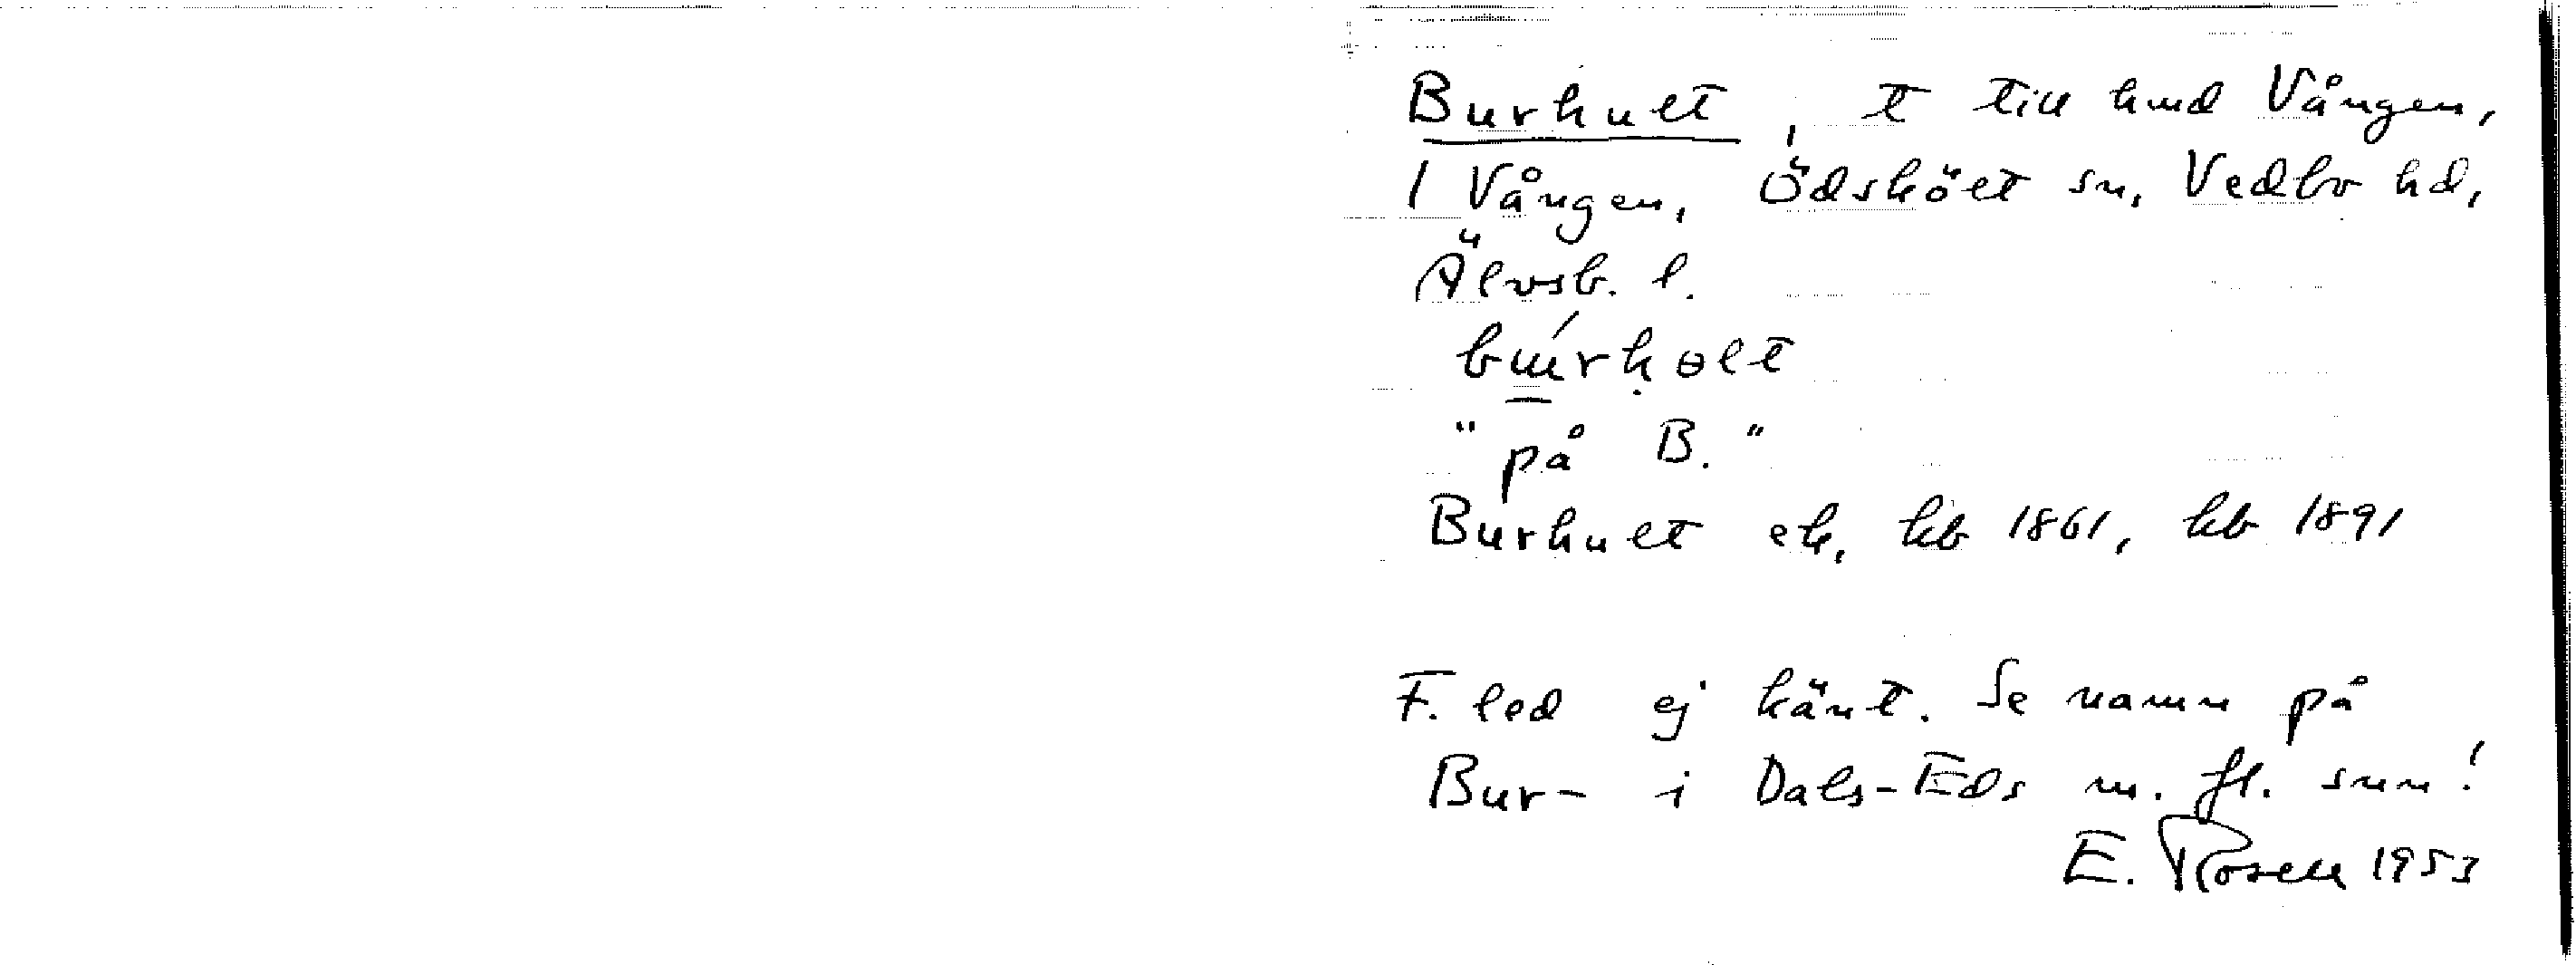 Burhult, t till hmd Vången,
1 Vången, Ödskölt sn, Vedbo hd,
Älvsb. l.
bu̲̇́rḥɵlt
"på B."
Burhult ek, hb 1861, hb 1891
F. led ej känt. Se namn på
Bur- i Dals-Eds m. fl. snn!
E. Rosell 1953